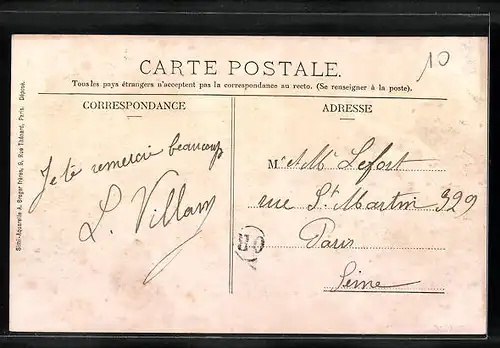 10
CARTE POSTALE.
Tous les pays étrangers n'acceptent pas la correspondance au recto. (Se renseigner à la poste).
CORRESPONDANCE
Je te remercie beaucoup
L. Villam
ADRESSE
M r et M e Lefort
rue St Martin 329
Paris
Seine
Simi-Aquarelle A. Breger frères, 9, Rue Thénard, Paris. Déposé.